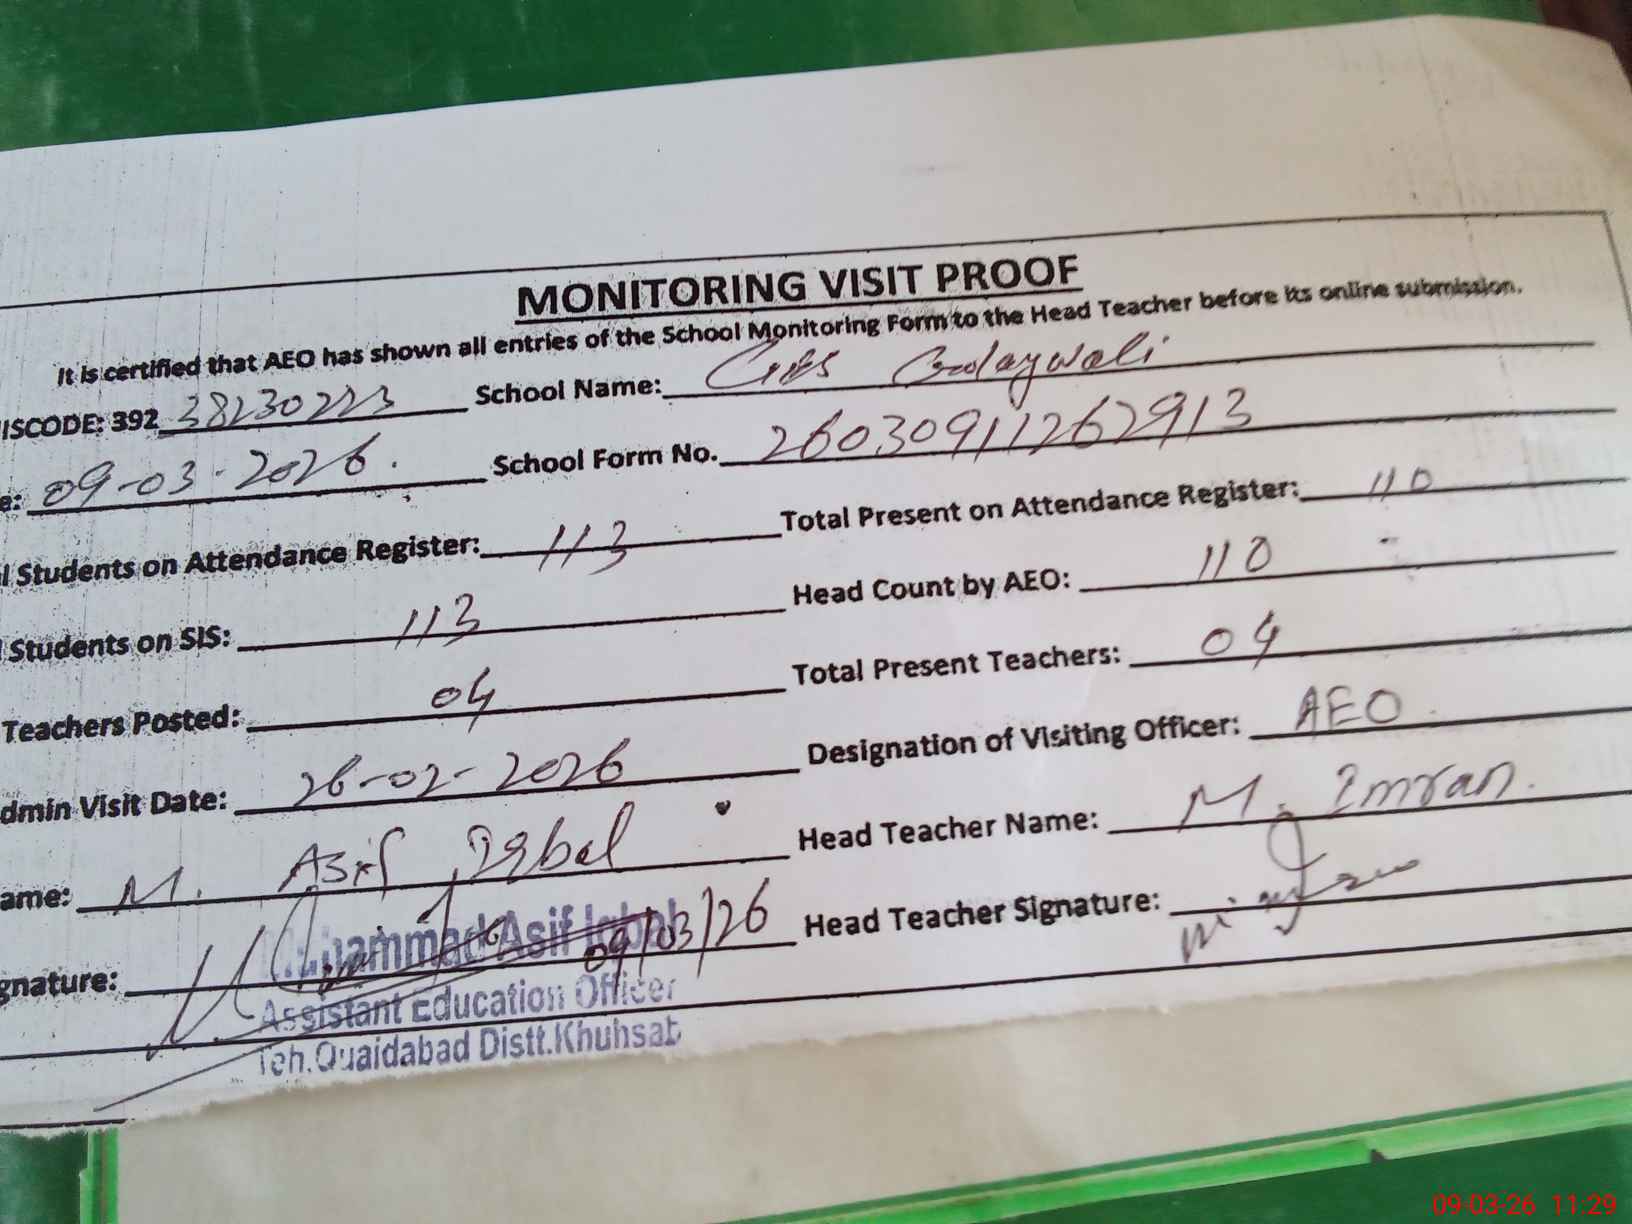 MONITORING VISIT PROOF
It is certified that AEO has shown all entries of the School Monitoring Form to the Head Teacher before its online submission.
ISCODE: 392 38230223 School Name:
e: 09-03-2026. School Form No. 26030911262913
l Students on Attendance Register: 113 Total Present on Attendance Register: 110
Students on SIS: 113 Head Count by AEO: 110
Teachers Posted: 04 Total Present Teachers: 04
dmin Visit Date: 26-02-2026 Designation of Visiting Officer: AEO
ame: M. Asif Iqbal Head Teacher Name: M. Imran.
gnature: 09/03/26 Head Teacher Signature:
Muhammad Asif Iqbal
Assistant Education Officer
Teh.Quaidabad Distt.Khuhsab
09-03-26 11:29